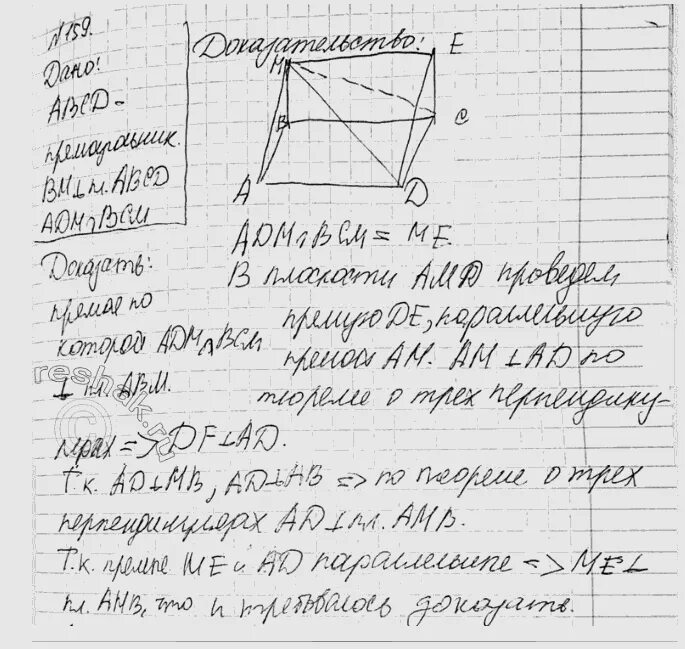 №159.
Дано:
ABCD –
прямоугольник.
BM⊥пл. ABCD
ADM∩BCM
Доказать:
прямая по
которой ADM∩BCM
⊥ пл. ABM.
Доказательство:
M
E
B
C
A
D
ADM∩BCM = ME.
В плоскости AMD проведем
прямую DE, параллельную
прямой AM. AM⊥AD по
теореме о трех перпендику-
лярах => DF⊥AD.
Т.к. AD⊥MB, AD⊥AB => по теореме о трех
перпендикулярах AD⊥пл. AMB.
Т.к. прямые ME и AD параллельные => ME⊥
пл. AMB, что и требовалось доказать.
reshak.ru
©